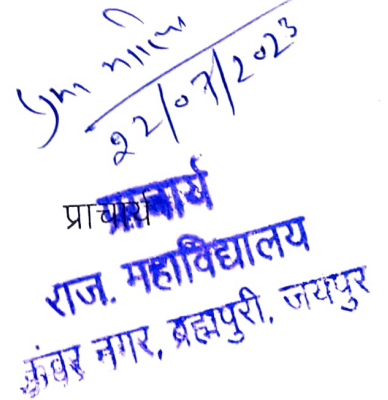 22/07/2023
प्राचार्य
प्राचार्य
राज. महाविद्यालय
कंवर नगर, ब्रह्मपुरी, जयपुर